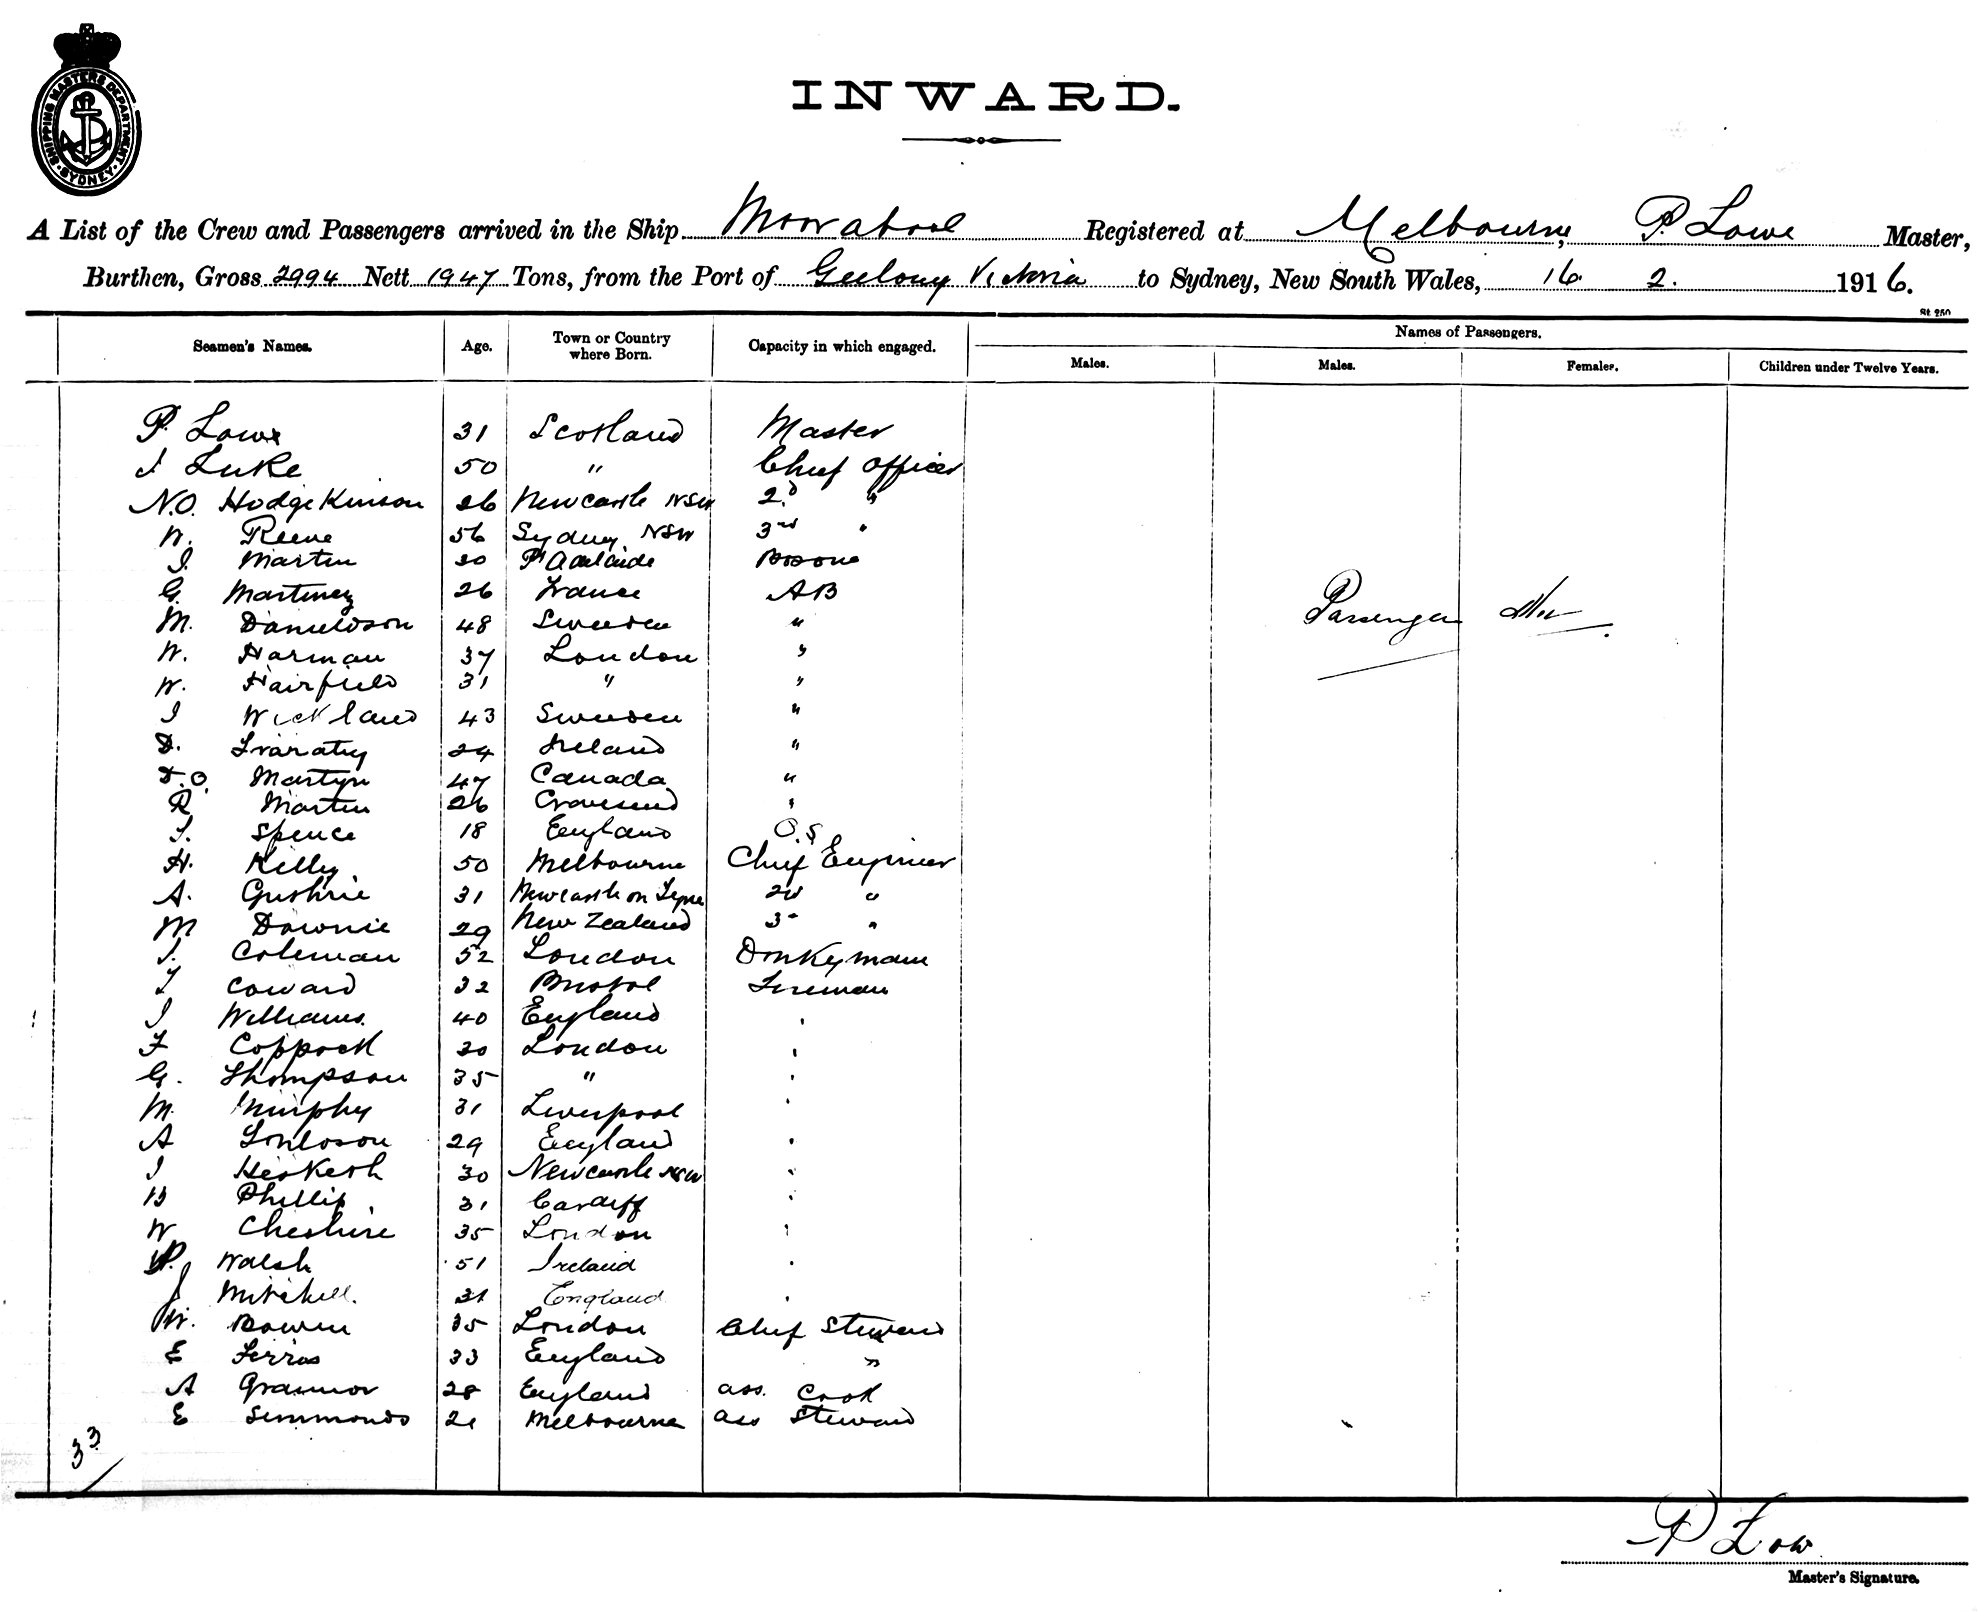 SHIPPING MASTERS DEPARTMENT
SYDNEY
INWARD.
A List of the Crew and Passengers arrived in the Ship Moorabool Registered at Melbourne, P. Lowe Master,
Burthen, Gross 2994 Nett 1947 Tons, from the Port of Geelong Victoria to Sydney, New South Wales, 16. 2. 1916.
St 250
Seamen's Names. Age. Town or Country where Born. Capacity in which engaged. Names of Passengers.
Males. Males. Females. Children under Twelve Years.
P. Lowe 31 Scotland Master
J Luke 50 " Chief Officer
N.O. Hodgekinson 26 Newcastle NSW 2d "
W. Reeve 56 Sydney NSW 3rd "
J. Martin 30 Pt Adelaide
G. Martinez 26 France AB
M. Danieldson 48 Sweden "
W. Harman 37 London "
W. Hairfield 31 " "
J Wickland 43 Sweden "
D. 24 Ireland "
Martyn 47 Canada "
R Martin 26 Gravesend "
J. Spence 18 England O.S
H. Kelly 50 Melbourne Chief Engineer
A. Guthrie 31 Newcastle on Tyne 2d "
M Downie 29 New Zealand 3 "
J. Coleman 52 London Donkeyman
T Coward 32 Bristol Fireman
J Williams. 40 England "
F Coppock 30 London "
G. Thompson 35 " "
M. Murphy 31 Liverpool "
A 29 England "
J Hesketh 30 Newcastle NSW "
B Phillip 31 Cardiff "
W Cheshire 35 London "
P. Walsh 51 Ireland "
J Mitchell. 31 England "
W. Bowen 35 London Chief Steward
E Ferris 33 England "
A 28 England ass. Cook
E Simmonds 21 Melbourne ass Steward
33
Passengers
P Low
Master's Signature.